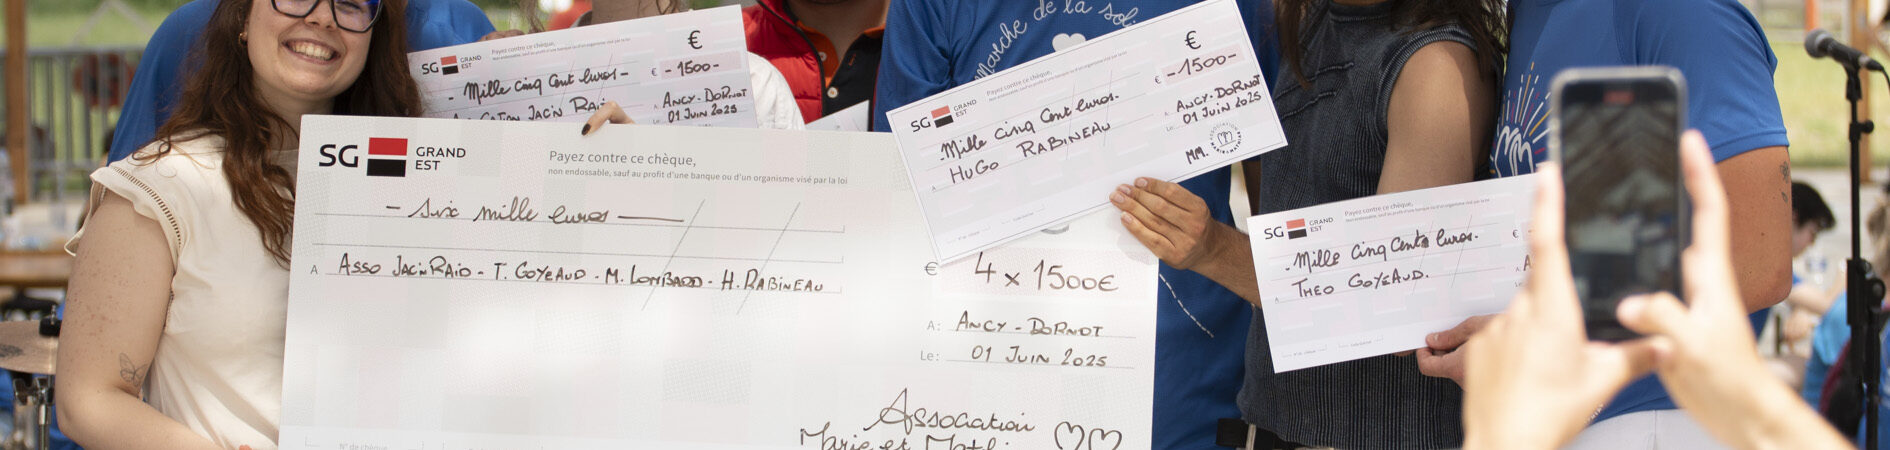 SG GRAND EST
Payez contre ce chèque,
non endossable, sauf au profit d'une banque ou d'un organisme visé par la loi
€
- Mille Cinq Cent Euros -
€ - 1500 -
JAC'N RAID
A: ANCY-DORNOT
01 JUIN 2025
marche de la
SG GRAND EST
Payez contre ce chèque,
non endossable, sauf au profit d'une banque ou d'un organisme visé par la loi
€
- Mille Cinq Cent Euros.
€ - 1500 -
A HUGO RABINEAU
A: ANCY-DORNOT
Le: 01 JUIN 2025
MM.
SG GRAND EST
Payez contre ce chèque,
non endossable, sauf au profit d'une banque ou d'un organisme visé par la loi
- six mille euros -
A ASSO JAC'N RAID - T. GOYEAUD - M. LOMBARD - H. RABINEAU
€ 4 x 1500€
A: ANCY - DORNOT
Le: 01 JUIN 2025
Association
Marie et
N° de chèque
SG GRAND EST
Payez contre ce chèque,
- Mille Cinq Cents Euros -
€ -
A THEO GOYEAUD.